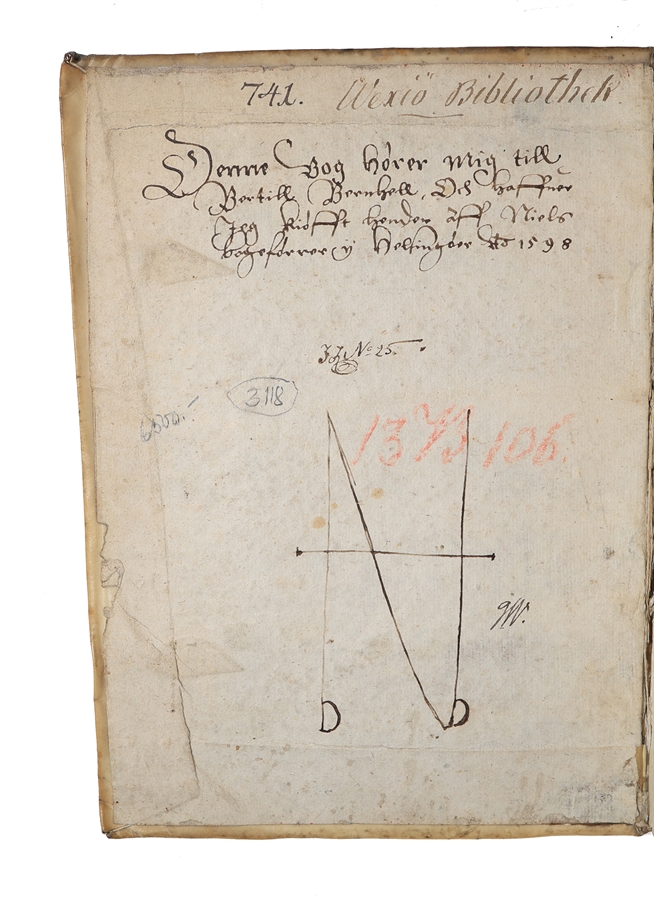 741. Wexiö Bibliothek
Denne Bog hörer mig till
Bertill Bernhell, Och haffuer
Jeg kiöfft hender aff Niels
bogeförrer y Helsingöer Ao 1598
No 25.
3118
1373-106.
D D